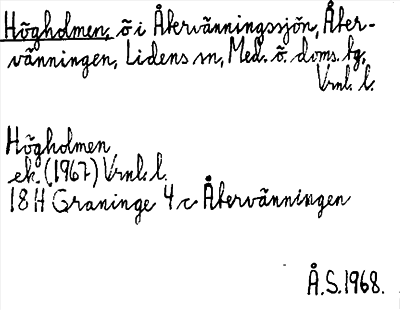 Högholmen, ö i Återvänningssjön, Åter-
vänningen, Lidens sn, Med. ö. doms. tg,
Vrnl. l.
Högholmen
ek. (1967) Vrnl. l.
18 H Graninge 4 c Återvänningen
Å.S. 1968.